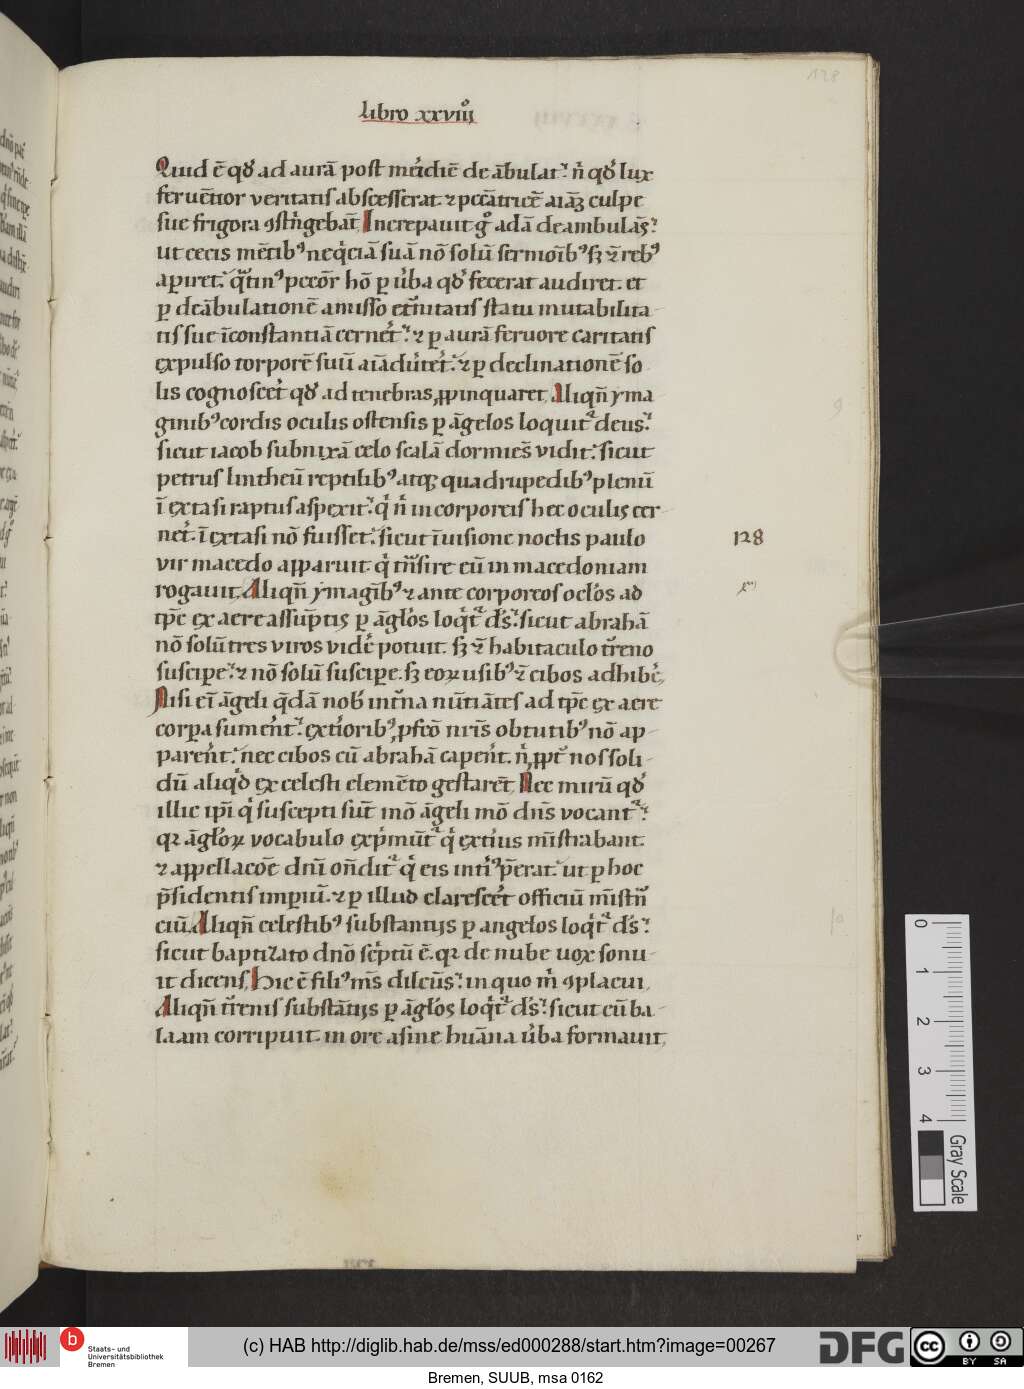 128
libro xxviijͦ
Quid ē qd' ad aurā post mͥdiē de ābulat᷑. n̄ qd' lux
feruētior veritatis abscesserat. ⁊ pccātricē aīāꝫ culpe
sue frigora ꝯstͥngebāt. Increpauit gͦ adā deambulās̄.
ut cecis mētibꝰ neqͥciā suā nō solū sermoībꝰ sꝫ ⁊̄ rebꝰ
apiret. qͣtinꝰ peccōr hō ꝑ ūba qd' fecerat audiret. et
ꝑ deābulationē amisso et̄nitatis statu mutabilita
tis sue īconstantiā cernet᷑. ⁊ ꝑ aurā feruore caritatis
expulso torporē suū aīaduͥtet᷑. ⁊ ꝑ declinationē so
lis cognoscet᷑ qd' ad tenebras ꝓpinquaret. Aliqn̄ yma
ginibꝰ cordis oculis ostensis ꝑ āgelos loquitᷣ deus.
sicut iacob subnixā celo scalā dormiēs vidit. sicut
petrus lintheū reptilibꝰ atqꝫ quadrupedibꝰ plenū
ī extasi raptus aspexit. qͥ n̄ incorporeis hec oculis cer
net᷑. ī extasi nō fuisset. sicut ī uisione noctis paulo
128
vir macedo apparuit. qͥ tn̄sire eū in macedoniam
rogauit. Aliqn̄ ymagībꝰ ⁊ ante corporeos ocl'os ad
tp̄c ex aere assūptis ꝑ āgl'os loqͥtᷣ d's. sicut abrahā
nō solū tres viros vidē potuit. sꝫ ⁊̄ habitaculo tr̄eno
suscipe. ⁊ nō solū suscipe. sꝫ eoꝝ usibꝰ ⁊̄ cibos adhibē.
Nisi eī āgeli qͣdā nob' int̄na nūtiātes ad tp̄c ex aere
corpa sument᷑. extͥoribꝰ ꝓfcō nr̄is obtutibꝰ nō ap
parent᷑. nec cibos cū abrahā capent᷑. n̄ ꝓpt᷑ nos soli
dū aliqͥd ex celesti elemēto gestarēt. Nec mirū qd'
illic ip̄i qͥ suscepti sūt mō āgeli mō dn̄s vocantᷣ.
qꝛ āgl'oꝝ vocabulo exp̄mūtᷣ qͥ extͥius mīstrabant.
⁊ appellacōe dn̄i on̄ditᷣ qͥ eis intͥꝰ p̄erat. ut ꝑ hoc
p̄sidentis impiū. ⁊ ꝑ illud claresc̄et officiū mīstn̄
ciū. Aliqn̄ celestibꝰ substantijs ꝑ angelos loqͥtᷣ d's.
sicut baptizato dn̄o sc̄ptū ē. qꝛ de nube uox sonu
it dicens. Hic ē filiꝰ m̄s dilcūs. in quo m̄ ꝯplacui.
Aliqn̄ tr̄enis substātijs ꝑ āgl'os loqͥtᷣ d's. sicut cū ba
laam corripuit. in ore asine hūana ūba formauit.
0
1
2
3
4
Gray Scale
b
Staats- und
Universitätsbibliothek
Bremen
(c) HAB http://diglib.hab.de/mss/ed000288/start.htm?image=00267
DFG
cc BY SA
Bremen, SUUB, msa 0162